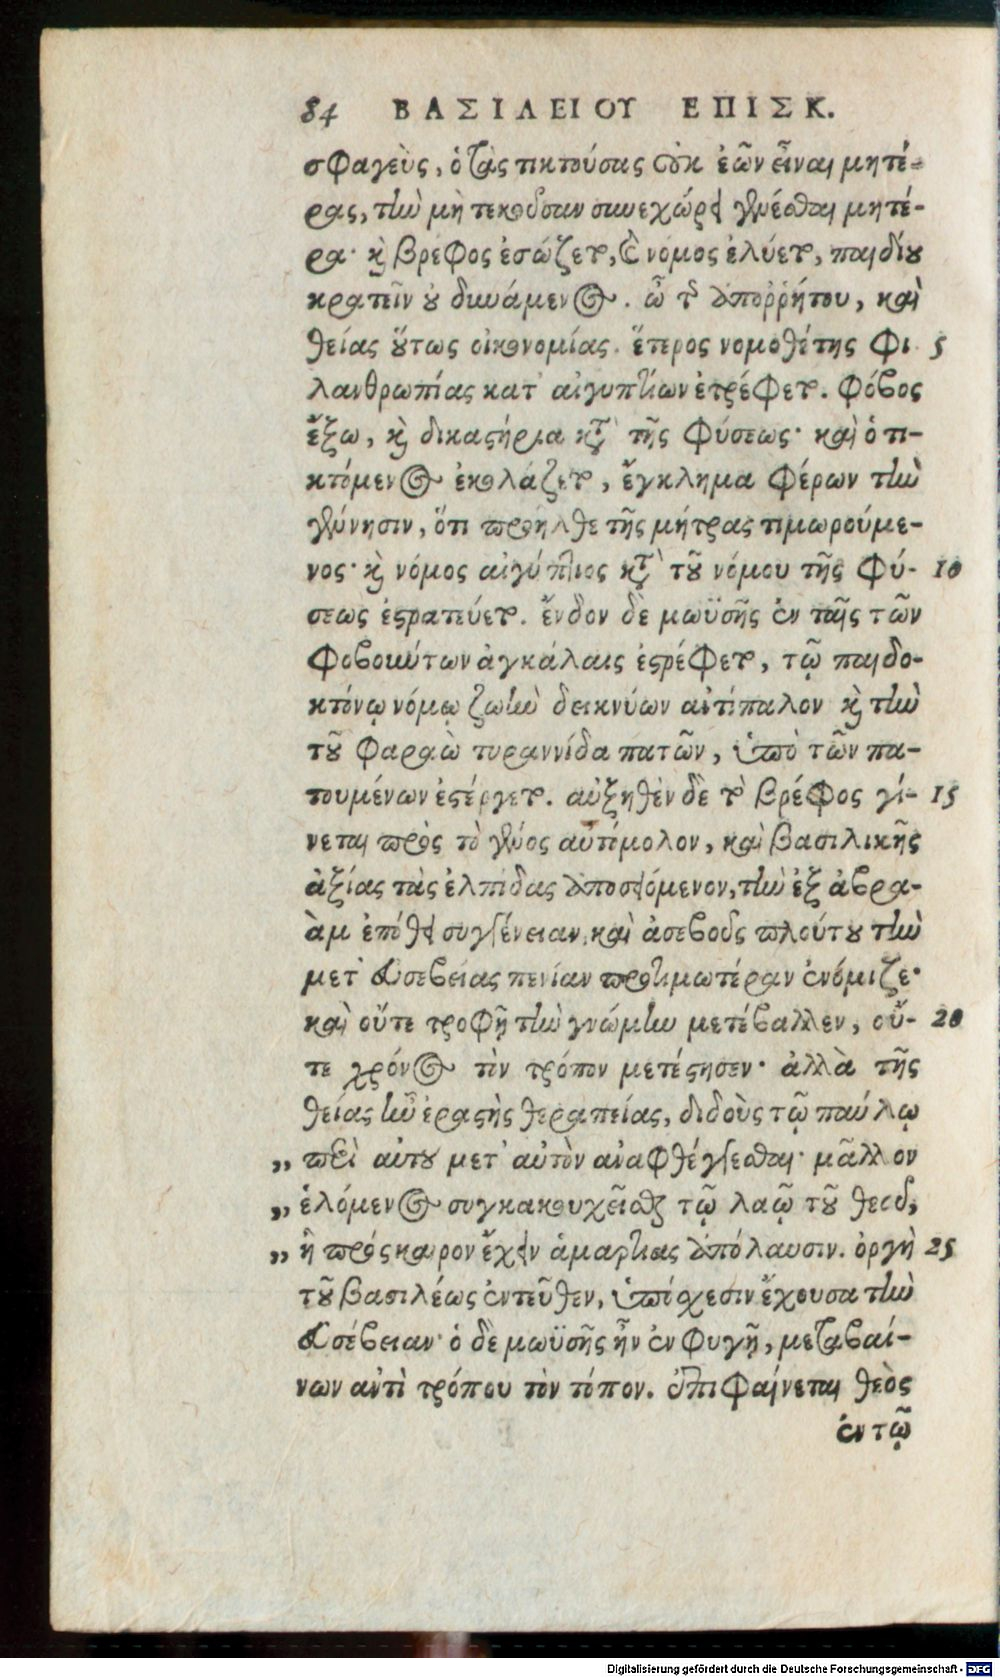 84 ΒΑΣΙΛΕΙΟΥ ΕΠΙΣΚ.
σφαγεὺς, ὁ τὰς τικτούσας οὐκ ἐῶν εἶναι μητέ-
ρας, τὴν μὴ τεκοῦσαν συνεχώρει γενέσθαι μητέ-
ρα· καὶ βρέφος ἐσώζετο, καὶ νόμος ἐλύετο, παιδίου
κρατεῖν οὐ δυνάμενος. ὢ τῆς ἀποῤῥήτου, καὶ
θείας ὄντως οἰκονομίας. ἕτερος νομοθέτης φι 5
λανθρωπίας κατ' αἰγυπτίων ἐτρέφετο. φόβος
ἔξω, καὶ δικαστήρια κατὰ τῆς φύσεως· καὶ ὁ τι-
κτόμενος ἐκολάζετο, ἔγκλημα φέρων τὴν
γέννησιν, ὅτι προῆλθε τῆς μήτρας τιμωρούμε-
νος· καὶ νόμος αἰγύπτιος κατὰ τοῦ νόμου τῆς φύ- 10
σεως ἐστρατεύετο. ἔνδον δὲ μωϋσῆς ἐν ταῖς τῶν
φοβούντων ἀγκάλαις ἐστρέφετο, τῷ παιδο-
κτόνῳ νόμῳ ζωὴν δεικνύων ἀντίπαλον καὶ τὴν
τοῦ φαραὼ τυραννίδα πατῶν, ὑπὸ τῶν πα-
τουμένων ἐστέργετο. αὐξηθὲν δὲ τὸ βρέφος γί- 15
νεται πρὸς τὸ γένος αὐτόμολον, καὶ βασιλικῆς
ἀξίας τὰς ἐλπίδας ἀποσειόμενον, τὴν ἐξ ἀβρα-
ὰμ ἐπόθει συγγένειαν, καὶ ἀσεβοῦς πλούτου τὴν
μετ' εὐσεβείας πενίαν προτιμωτέραν ἐνόμιζε·
καὶ οὔτε τροφῇ τὴν γνώμην μετέβαλλεν, οὔ- 20
τε χρόνος τὸν τρόπον μετέστησεν· ἀλλὰ τῆς
θείας ἦν ἐραστὴς θεραπείας, διδοὺς τῷ παύλῳ
„ περὶ αὐτοῦ μετ' αὐτὸν ἀναφθέγγεσθαι· μᾶλλον
„ ἑλόμενος συγκακουχεῖσθαι τῷ λαῷ τοῦ θεοῦ,
„ ἢ πρόσκαιρον ἔχειν ἁμαρτίας ἀπόλαυσιν. ὀργὴ 25
τοῦ βασιλέως ἐντεῦθεν, ὑπόσχεσιν ἔχουσα τὴν
εὐσέβειαν· ὁ δὲ μωϋσῆς ἦν ἐν φυγῇ, μεταβαί-
νων ἀντὶ τρόπου τὸν τόπον. ἐπιφαίνεται θεὸς
ἐν τῷ
Digitalisierung gefördert durch die Deutsche Forschungsgemeinschaft - DFG